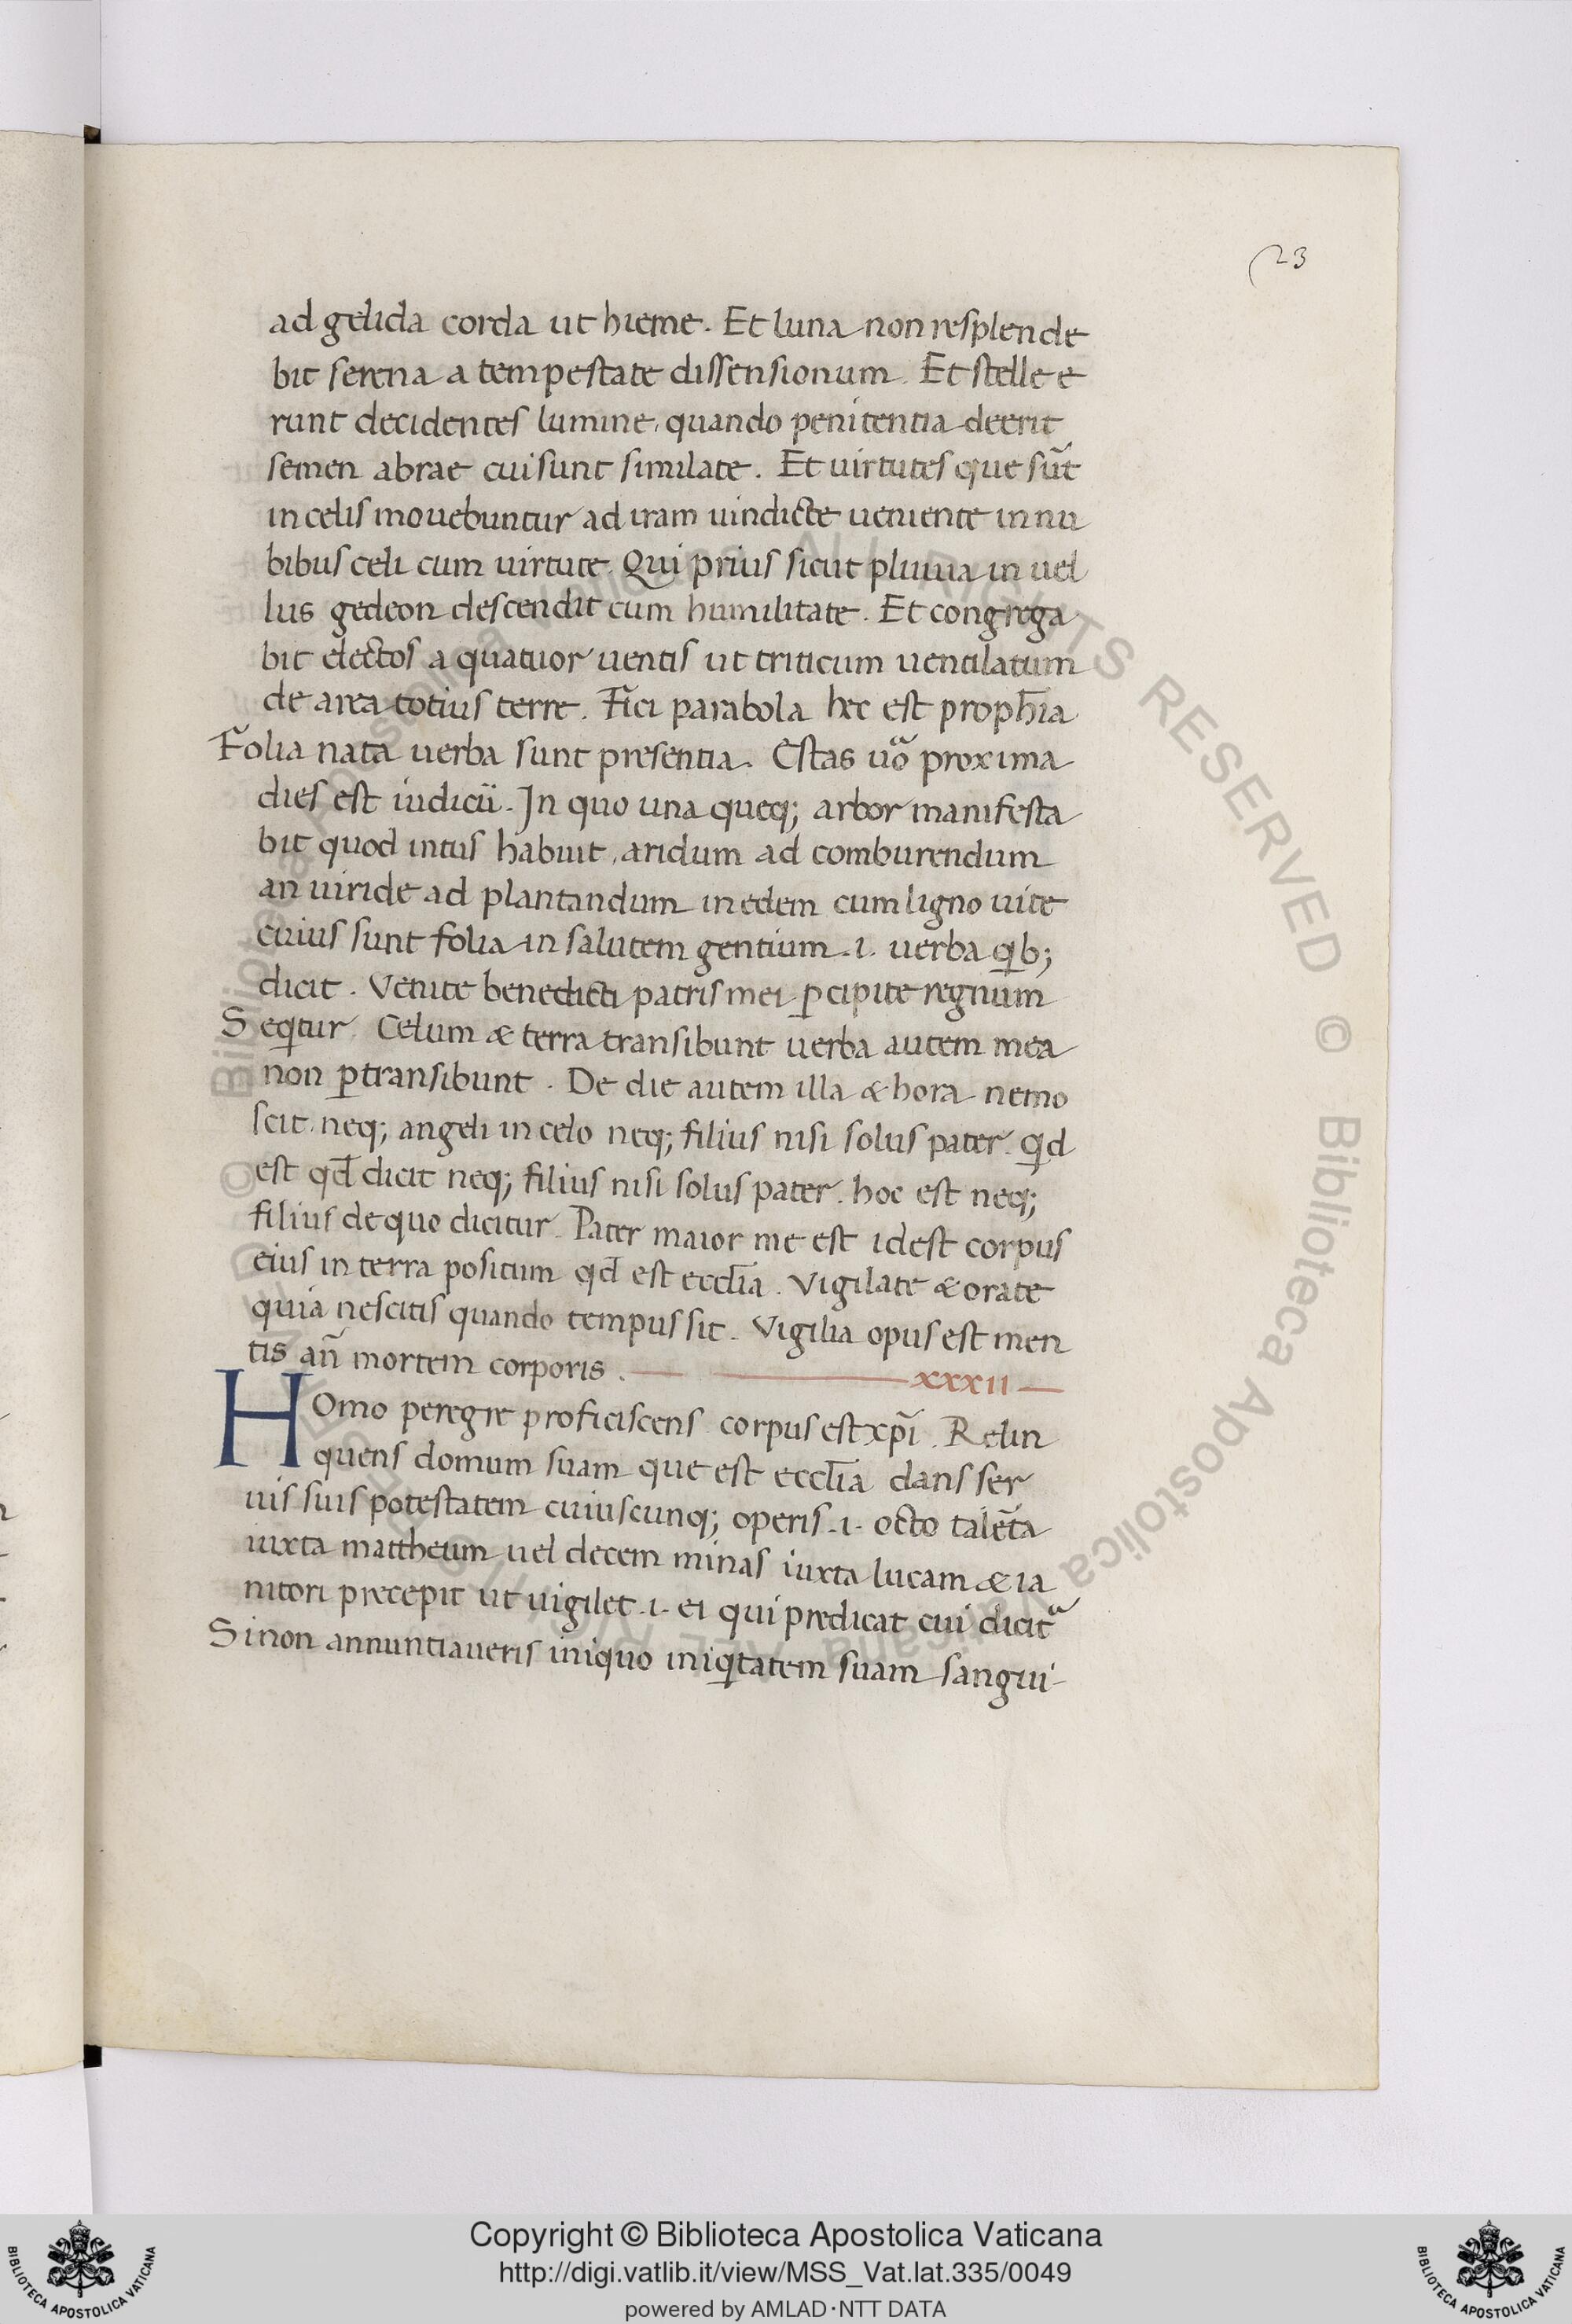 23
ad gelida corda ut hieme. Et luna non resplende
bit serena a tempestate dissensionum. Et stelle e
runt decidentes lumine, quando penitentia deerit
semen abrae cui sunt similate. Et uirtutes que sūt
in celis mouebuntur ad iram uindicte ueniente in nu
bibus celi cum uirtute. Qui prius sicut pluuia in uel
lus gedeon descendit cum humilitate. Et congrega
bit electos a quatuor uentis ut triticum uentilatum
de area totius terre. Fici parabola hec est proph̄ia
Folia nata uerba sunt presentia. Estas uō proxima
dies est iudicii. In quo una queq; arbor manifesta
bit quod intus habuit, aridum ad comburendum
an uiride ad plantandum in edem cum ligno uite
cuius sunt folia in salutem gentium .i. uerba qib;
dicit. Venite benedicti patris mei ꝑcipite regnum
Seqitur. Celum & terra transibunt uerba autem mea
non ꝑtransibunt. De die autem illa & hora nemo
scit, neq; angeli in celo neq; filius nisi solus pater. qid
est qd̄ dicit neq; filius nisi solus pater. hoc est neq;
filius de quo dicitur. Pater maior me est idest corpus
eius in terra positum qd̄ est eccl̄ia. Vigilate & orate
quia nescitis quando tempus sit. Vigilia opus est men
tis an̄ mortem corporis.
xxxii
Homo peregre proficiscens corpus est xp̄i. Relin
quens domum suam que est eccl̄ia dans ser
uis suis potestatem cuiuscunq; operis .i. octo talēta
iuxta mattheum uel decem minas iuxta lucam & ia
nitori precepit ut uigilet .i. ei qui predicat cui dicit᷑
Si non annuntiaueris iniquo iniqitatem suam sangui-
© Biblioteca Apostolica Vaticana ALL RIGHTS RESERVED © Biblioteca Apostolica Vaticana ALL RIGHTS RESERVED
BIBLIOTECA APOSTOLICA VATICANA
Copyright © Biblioteca Apostolica Vaticana
http://digi.vatlib.it/view/MSS_Vat.lat.335/0049
powered by AMLAD·NTT DATA
BIBLIOTECA APOSTOLICA VATICANA